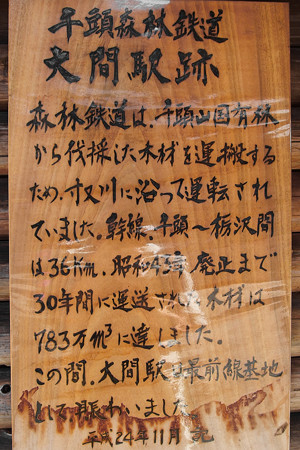 千頭森林鉄道
大間駅跡
森林鉄道は、千頭山国有林
から伐採した木材を運搬する
ため、寸又川に沿って運転され
ていました。幹線・千頭～栃沢間
は36Km、昭和43年廃止まで
30年間に運送された木材は
783万m³に達しました。
この間、大間駅は最前線基地
として賑わいました。
平成24年11月 記